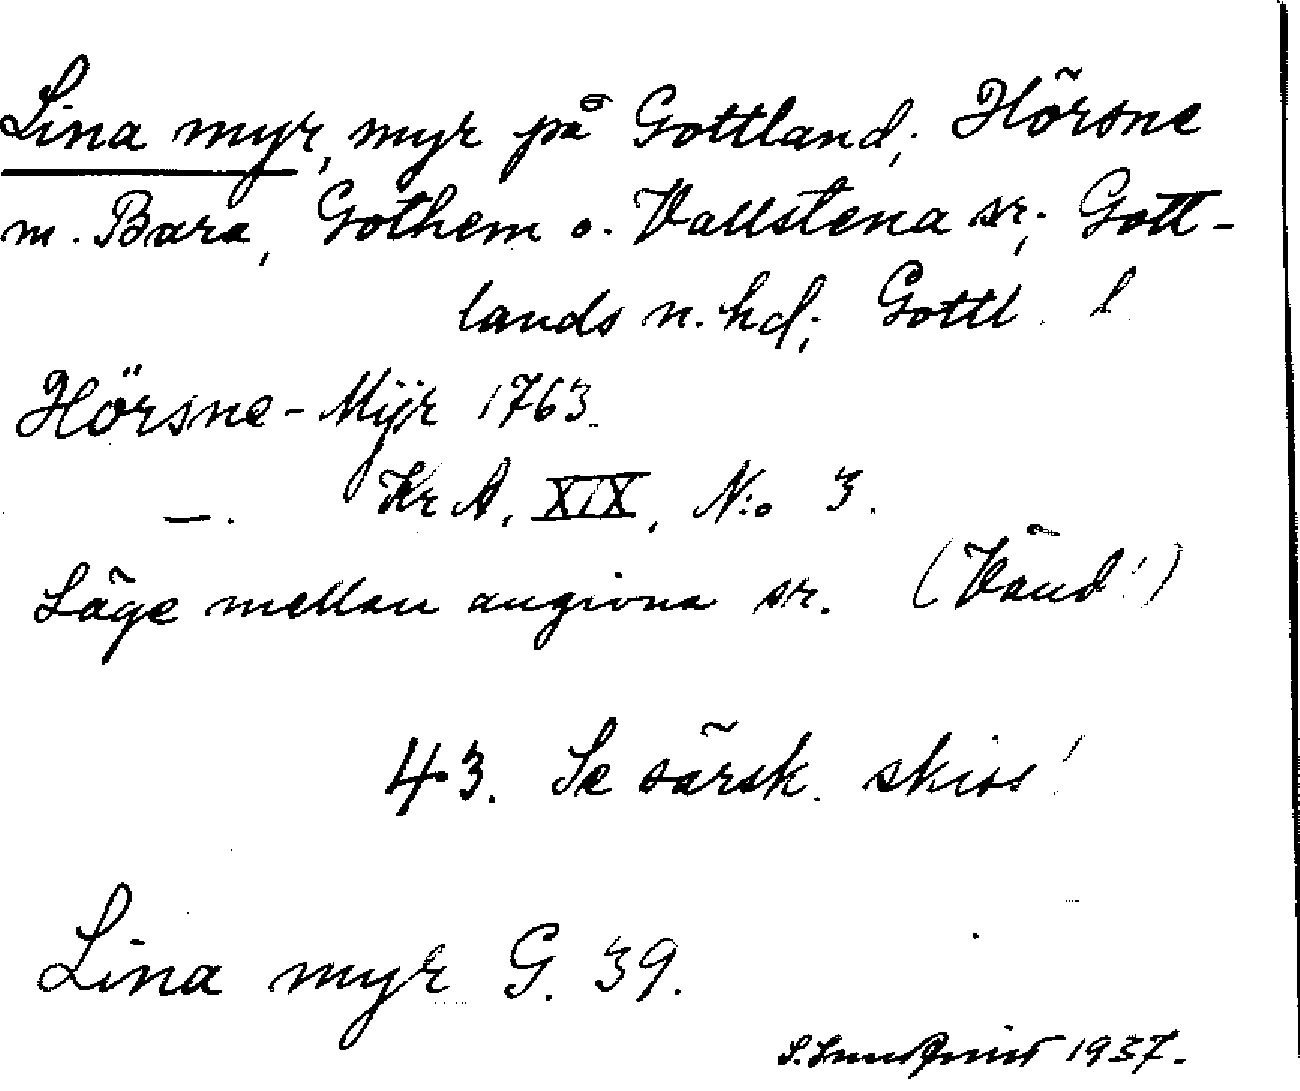 Lina myr, myr på Gottland; Hörsne
m. Bara, Gothem o. Vallstena sr; Gott-
lands n. hd; Gottl. l
Hörsne-Mÿr 1763.
—. Kr A, XIX, N:o 3.
Läge mellan angivna sr. (Vänd!)
43. Se särsk. skiss!
Lina myr G. 39.
1937.